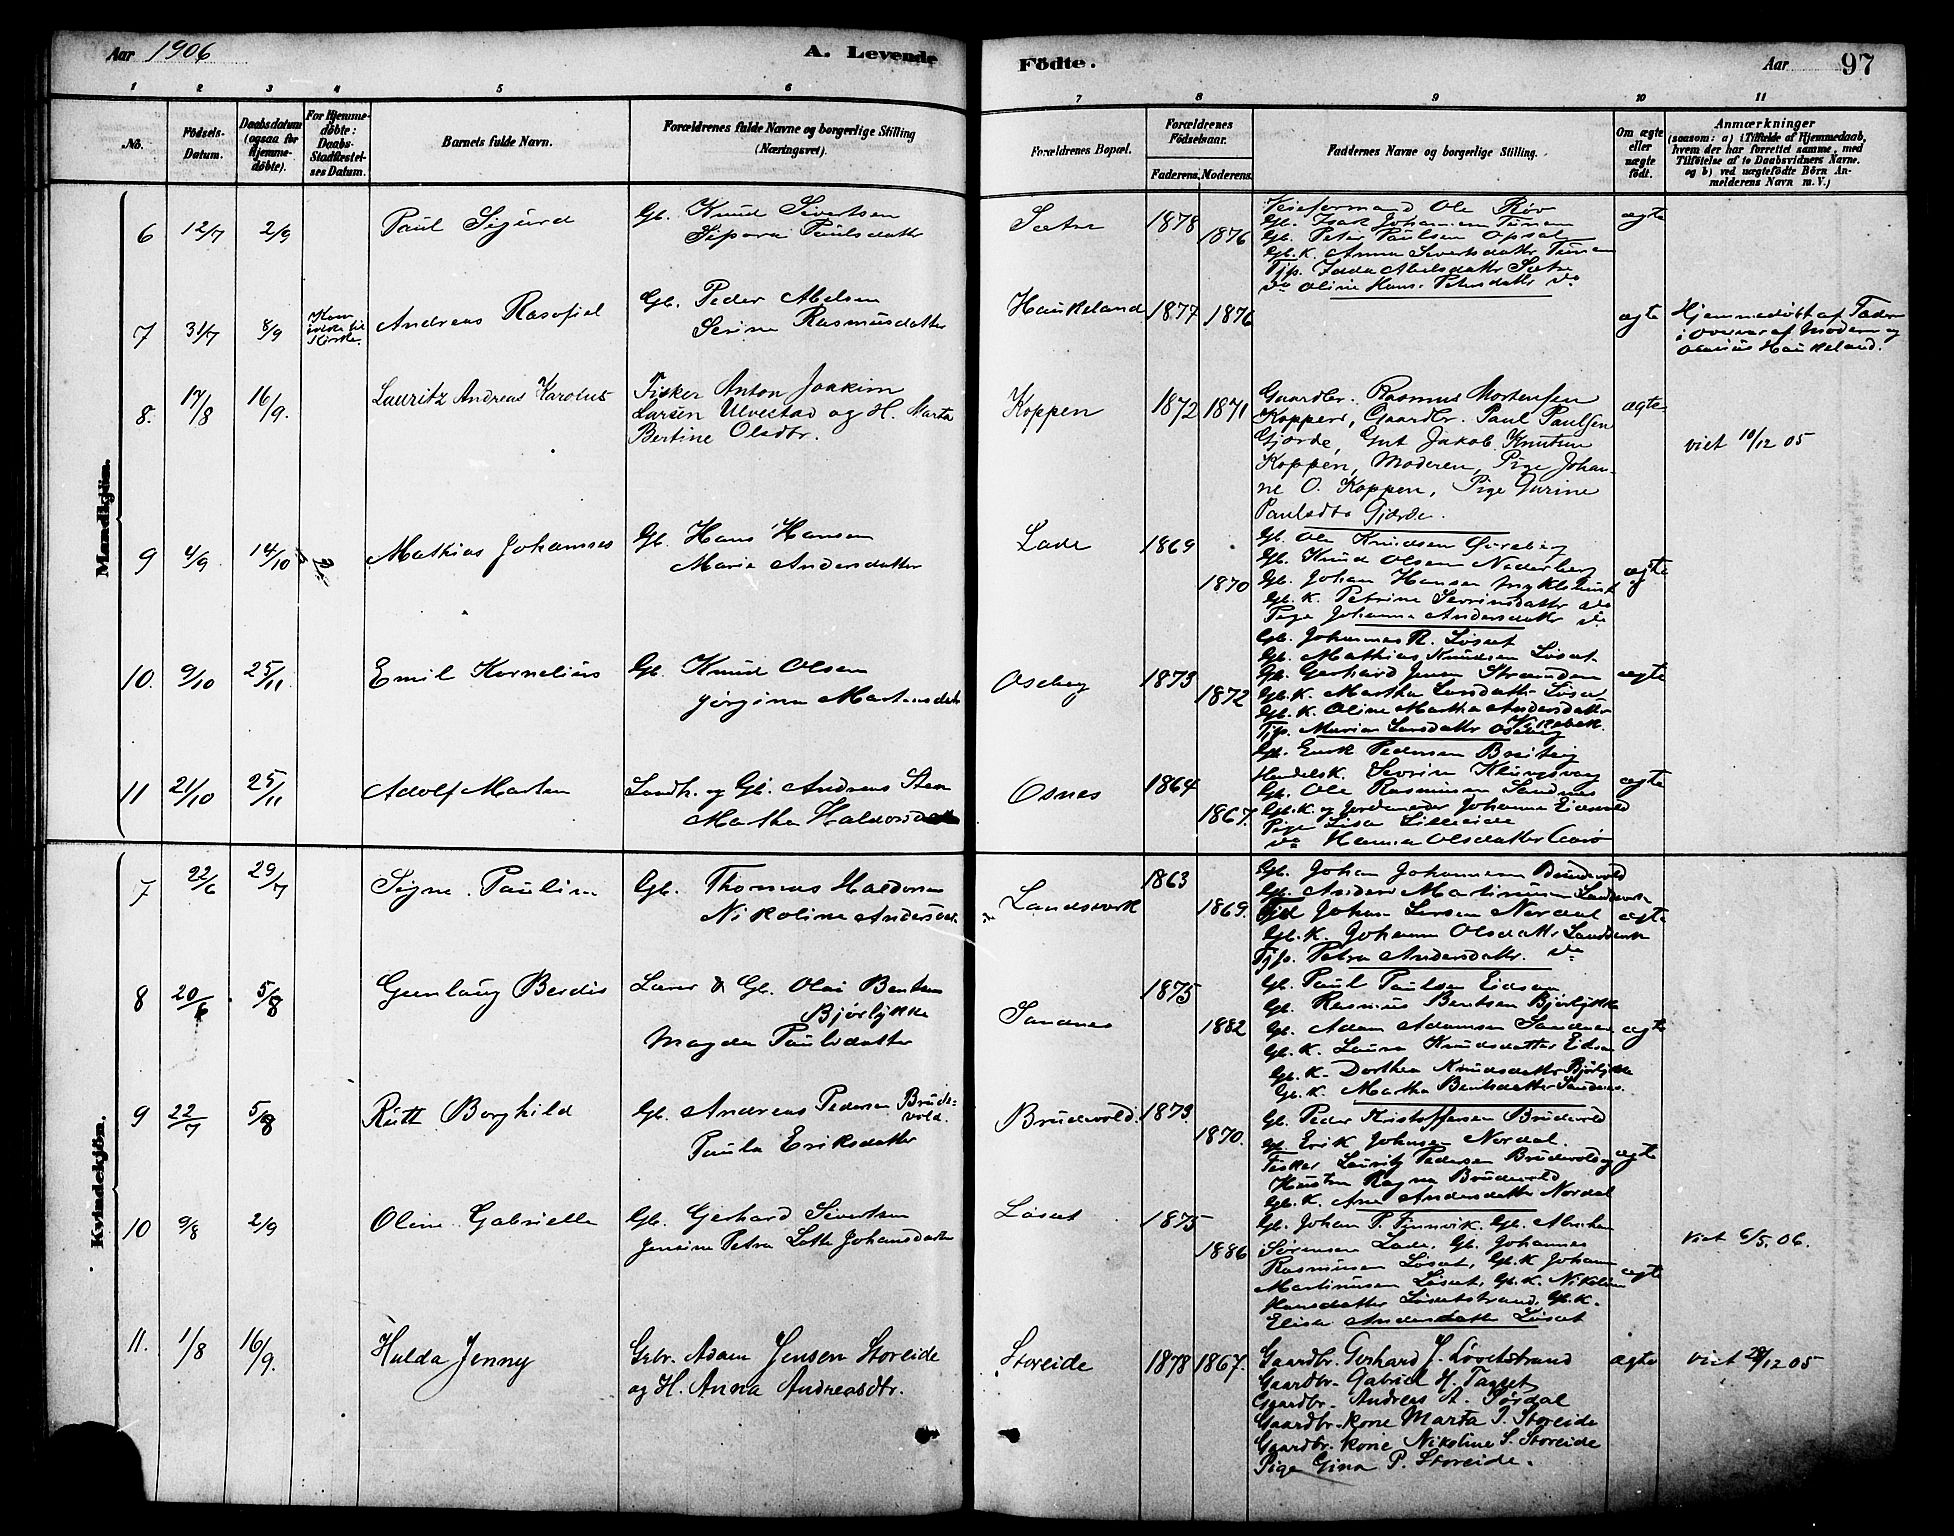 Aar 1906
A. Levende
Födte.
Aar
97
1 2 3 4 5 6 7 8 9 10 11
No.
Födsels-Datum.
Daabsdatum (ogsaa for Hjemme-döbte).
For Hjemme-döbte: Daabs-Stadfæstel-ses Datum.
Barnets fulde Navn.
Forældrenes fulde Navne og borgerlige Stilling (Næringsvei).
Forældrenes Bopæl.
Forældrenes Födselsaar.
Faderens. Moderens.
Faddernes Navne og borgerlige Stilling.
Om ægte eller uægte födt.
Anmærkninger
(saasom: a) i Tilfælde af Hjemmedaab, hvem der har forrettet samme, med Tilföielse af to Daabsvidners Navne. og b) ved uægtefödte Börn Anmelderens Navn m. V.)
Mandkjön.
6 12/7 2/9 Paul Sigurd
Gb. Knud Sivertsen
Paulsdatter
Sætre 1878 1876
Ole
Gb. Isak Johannesen
Gb. Peter Paulsen Opsal
Gb.K. Anna Sivertsdatter
Abelsdatter Sætre
do Oline Hans-Petersdatter do
ægte
7 31/7 8/9 Andreas
Gb. Peder Abelsen
Serine Rasmusdatter
Haukeland 1877 1876
ægte
Hjemmedöbt af Faderen
i Overvær af Moderen og
Haukeland.
8. 17/8 16/9. Lauritz Andreas Karolus
Fisker Anton Joakim
Larsen Ulvestad og H. Marta
Bertine Olsdtr.
Koppen 1872 1871
Gaardbr. Rasmus Mortensen
Koppen, Gaardbr. Paul Paulsen
Gjærde, Gut Jakob Knutsen
Koppen, Moderen, Pige Johan-
ne O. Koppen, Pige Gurine
Paulsdtr Gjærde.
ægte
viet 10/12 05
9 4/9 14/10 Mathias Johannes
Gb. Hans Hansen
Marie Andersdatter
Lade 1869 1870
Gb. Ole Knudsen
Gb. Knud Olsen
Gb. Johan Hansen Myklebust
Gb.K. Petrine Severinsdatter do
Pige Johanna Andersdatter do
ægte
10. 9/10 25/11 Emil Kornelius
Gb. Knud Olsen
Jørgine Martinsdatter
Aseby 1873 1872
Gb. Johannes R. Løset
Gb. Mathias Knudsen Løset
Gb. Gerhard Jensen Stranden
Gb.K. Martha Larsdatter Løset
Gb.K. Oline Martha Andersdatter
Larsdatter
ægte
11 21/10 25/11 Adolf Marten
Landh. og Gb. Andreas Steen
Martha Haldorsdatter
Osnes 1864 1867.
Gb. Erik Pedersen
Handelsk. Severin Klungsvær
Gb. Ole Rasmussen Sandnes
Gb.K. og Jordemoder Johanna Eidsvold
Pige Lisa Lilleeide
do Hanna Olsdatter Aarø
ægte
Kvindekjön.
7 22/6 29/7 Signe Pauline
Gb. Thomas Haldorsen
Nikoline Andersdtr.
Landsverk 1863 1869.
Gb. Johan Johannesen Brudevold
Gb. Anders Martinusen Landsverk
Johan Larsen Nordal
Gb.K. Johanne Olsdatter Landsverk
Petra Andersdatter. do
ægte
8 20/6 5/8 Gunlaug Berdis
Lærer & Gb. Olai Bentsen
Bjørlykke
Magda Paulsdatter
Sandnes 1875 1882
Gb. Paul Paulsen Eidsen
Gb. Rasmus Bentsen Bjørlykke
Gb. Adam Adamsen Sandnes
Gb.K. Laura Knudsdatter Eidsen
Gb.K. Dorthea Knudsdatter Bjørlykke
Gb.K. Martha Bentsdatter Sandnes.
ægte
9 22/7 5/8 Rutt Borghild
Gb. Andreas Pedersen Brude-
vold.
Paula Eriksdatter
Brudevold. 1873. 1870.
Gb. Peder Kristoffersen Brudevold
Gb. Erik Johnsen Nordal.
Fisker Lauritz Pedersen Brudevold og
Hustru Ragna Brudevold
Gb.K. Ane Andersdatter Nordal
ægte
10 9/8 2/9 Oline Gabrielle
Gb. Gerhard Sivertsen
Jensine Petra Lotte Johansdatter
Løset 1875 1886
Gb. Johan P. Finnvik. Gb. Abraham
Sørensen Lade. Gb. Johannes
Rasmussen Løset, Gb.K. Johanne
Martinusen Løset, Gb.K. Nikoline
Hansdatter Løsetstrand, Gb.K.
Elise Andersdatter Løset
ægte
viet 6/5. 06.
11. 1/8 16/9. Hulda Jenny
Grbr. Adam Jensen Storeide
og H. Anna Andreasdtr.
Storeide 1878 1867.
Gaardbr. Gerhard J. Løvetstrand
Gaardbr. Gabriel H.
Gaardbr. Andreas A. Sørdal
Gaardbr. kone Marta J. Storeide
Gaardbr. kone Nikoline S. Storeide
Pige Gina P. Storeide.
ægte
viet 28/12 05